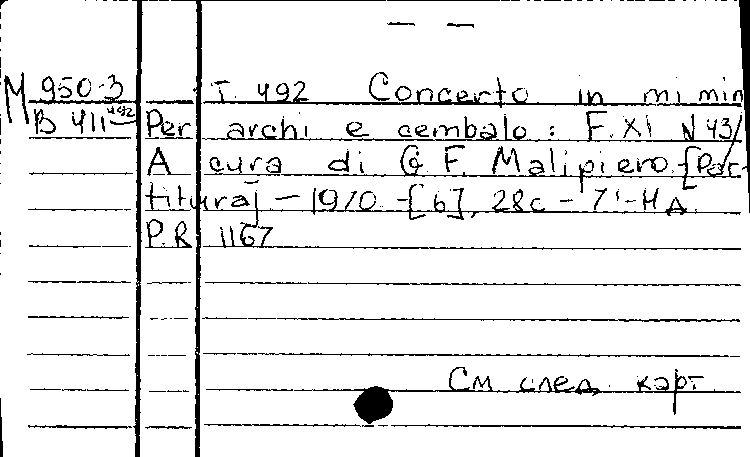 — —
М 950-3 T. 492 Concerto in mi min
В 411 492 Per archi e cembalo : F. XI N 43/
A cura di G F. Malipiero. [Par-
titura] – 1970 – [6], 28c – 7' – H A.
P.R. 1167
См след карт